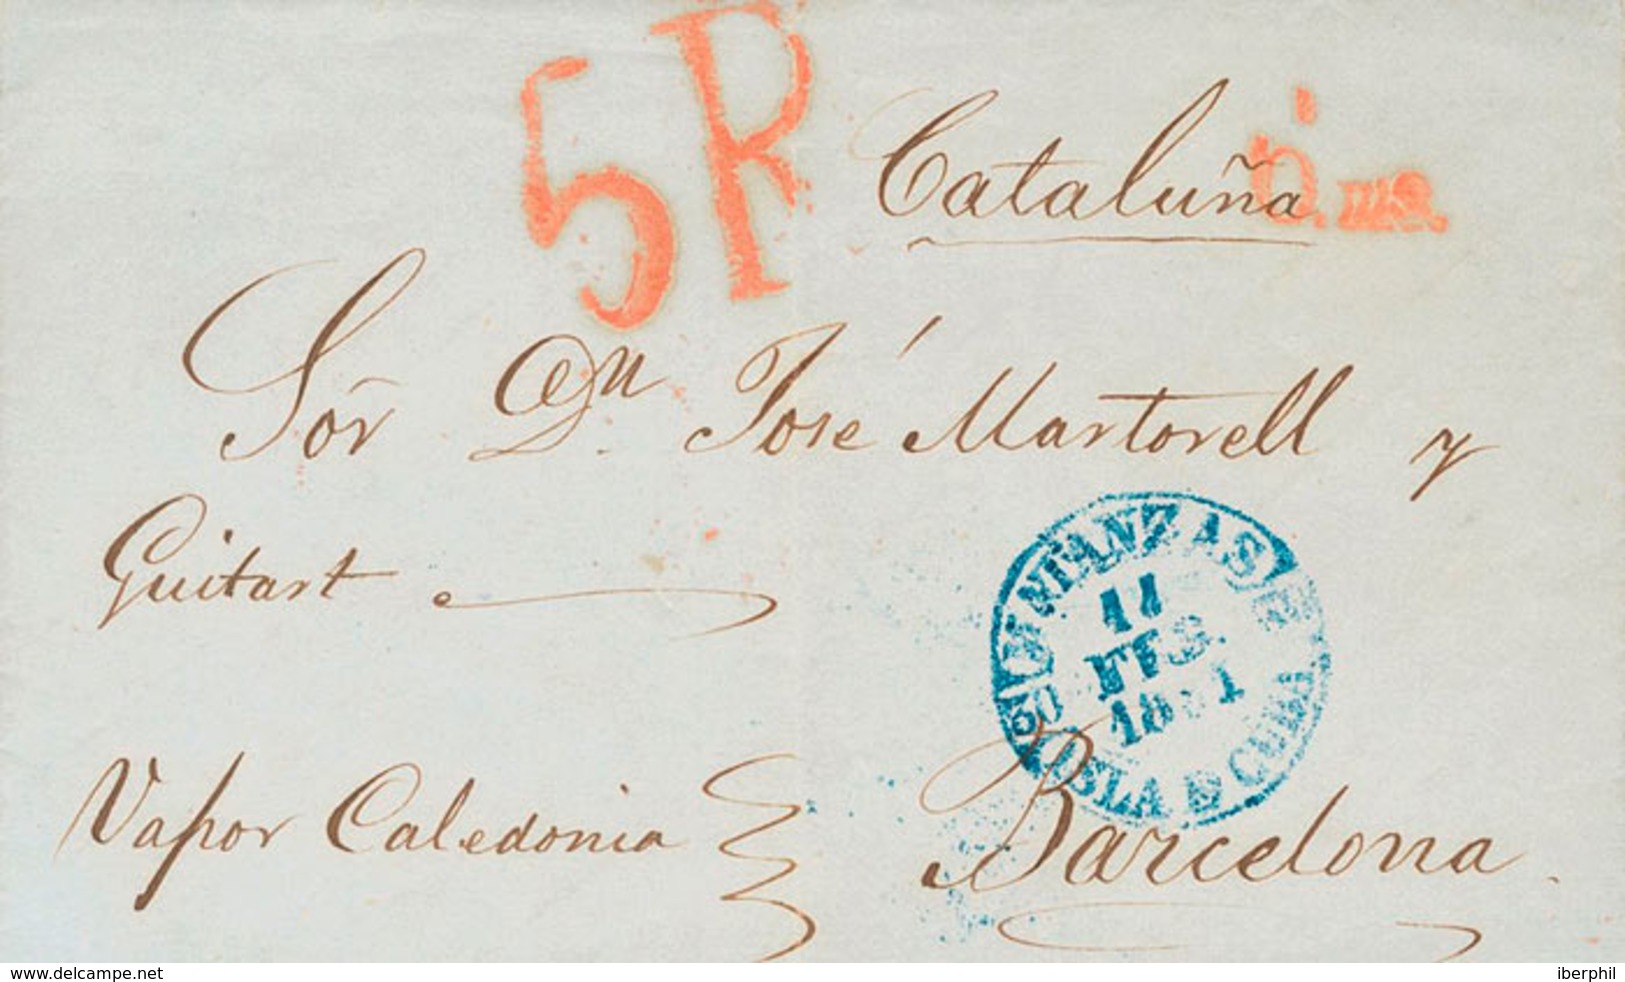 5R
Cataluña
Sor Dn. José Martorell y
Guitart
MATANZAS
11
FEB.
1851
ISLA DE CUBA
Vapor Caledonia
Barcelona.
www.delcampe.net
iberphil